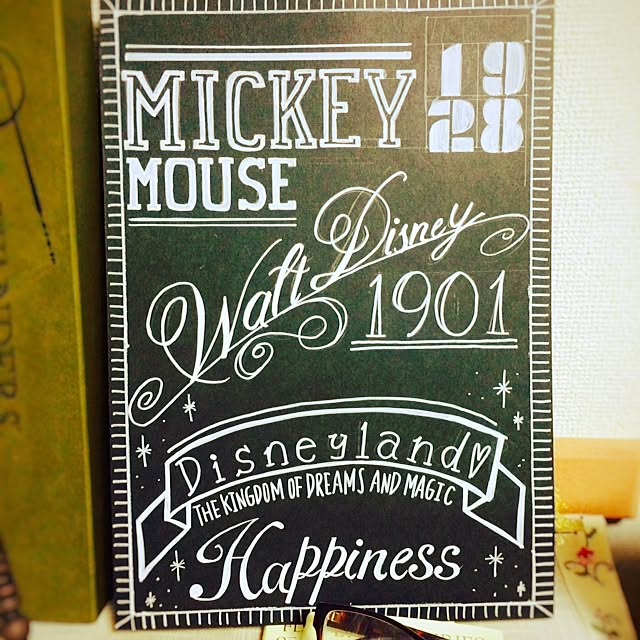 MICKEY
MOUSE
1928
Walt Disney
1901
Disneyland
THE KINGDOM OF DREAMS AND MAGIC
Happiness